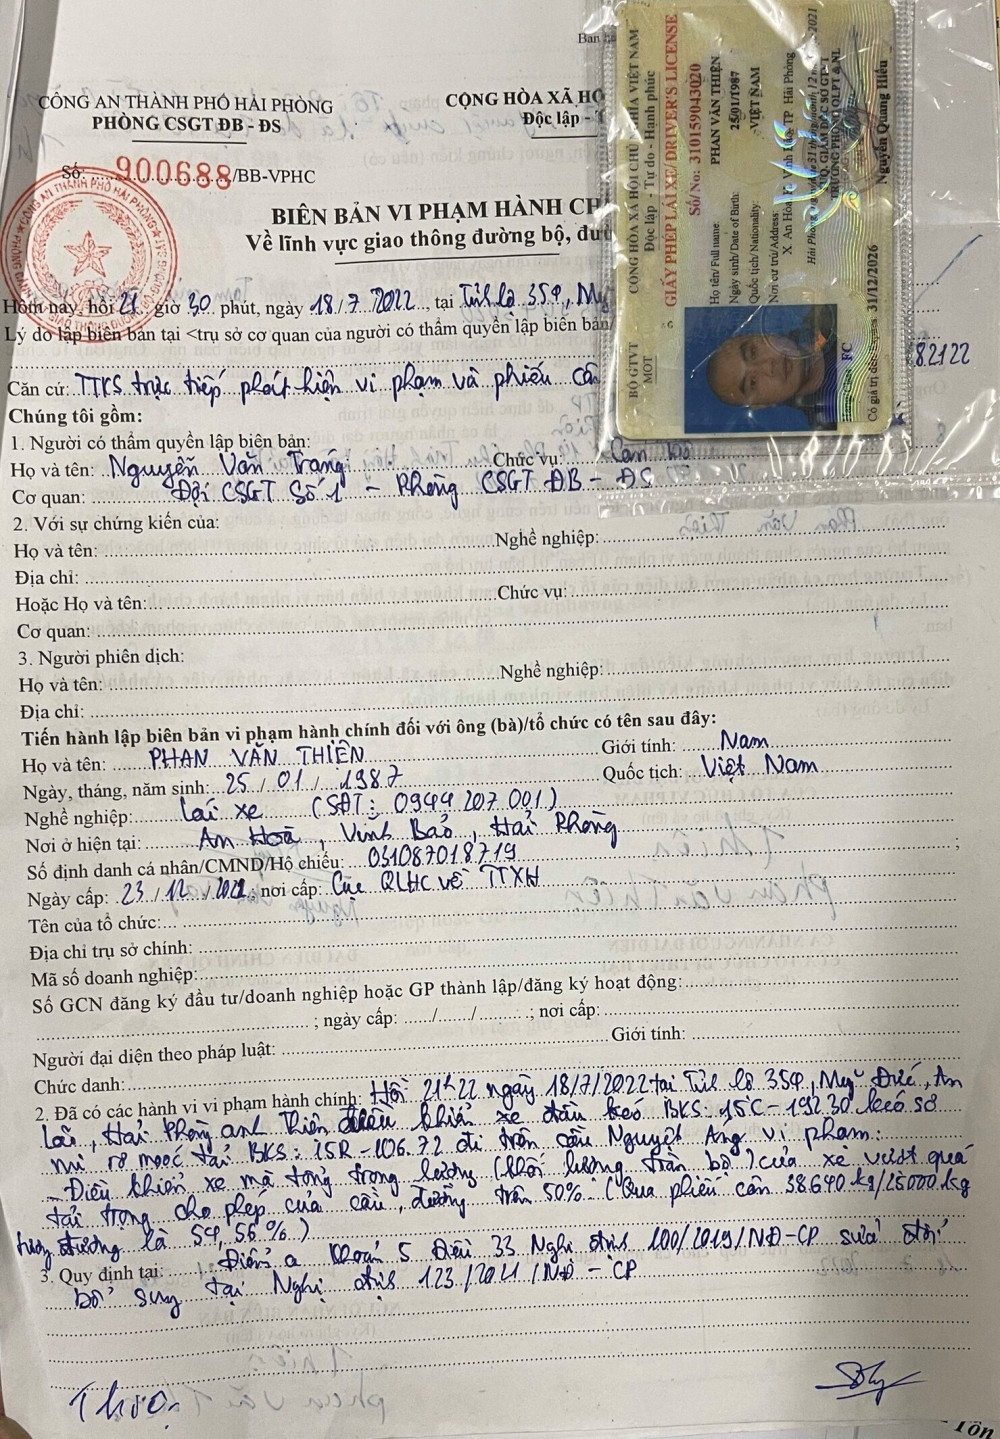 Ban
CÔNG AN THÀNH PHỐ HẢI PHÒNG
PHÒNG CSGT ĐB - ĐS
CỘNG HÒA XÃ HỘ
Độc lập - T
Số: 900688/BB-VPHC
BIÊN BẢN VI PHẠM HÀNH CH
Về lĩnh vực giao thông đường bộ, đườ
Hôm nay, hồi 21 giờ 30 phút, ngày 18/7/2022, tại Tỉnh lộ 359, Mỹ
Lý do lập biên bản tại <trụ sở cơ quan của người có thẩm quyền lập biên bản
82122
Căn cứ: TTKS trực tiếp phát hiện vi phạm và phiếu cân
Chúng tôi gồm:
1. Người có thẩm quyền lập biên bản:
Họ và tên: Nguyễn Văn Trang Chức vụ: Cán bộ
Cơ quan: Đội CSGT Số 1 - Phòng CSGT ĐB - ĐS
2. Với sự chứng kiến của:
Họ và tên: Nghề nghiệp:
Địa chỉ:
Hoặc Họ và tên: Chức vụ:
Cơ quan:
3. Người phiên dịch:
Họ và tên: Nghề nghiệp:
Địa chỉ:
Tiến hành lập biên bản vi phạm hành chính đối với ông (bà)/tổ chức có tên sau đây:
Họ và tên: PHAN VĂN THIỆN Giới tính: Nam
Ngày, tháng, năm sinh: 25/01/1987 Quốc tịch: Việt Nam
Nghề nghiệp: Lái xe (SĐT: 0949 207 001)
Nơi ở hiện tại: An Hoà, Vĩnh Bảo, Hải Phòng
Số định danh cá nhân/CMND/Hộ chiếu: 031087018719;
Ngày cấp: 23/12/2021, nơi cấp: Cục QLHC về TTXH
Tên của tổ chức:
Địa chỉ trụ sở chính:
Mã số doanh nghiệp:
Số GCN đăng ký đầu tư/doanh nghiệp hoặc GP thành lập/đăng ký hoạt động:
; ngày cấp: ....../....../......; nơi cấp:
Người đại diện theo pháp luật: Giới tính:
Chức danh:
2. Đã có các hành vi vi phạm hành chính: Hồi 21h22 ngày 18/7/2022 tại Tỉnh lộ 359, Mỹ Đức, An
Lão, Hải Phòng anh Thiện điều khiển xe đầu kéo BKS: 15C-192.30 kéo sơ
mi rơ moóc tải BKS: 15R-106.72 đi trên cầu Nguyệt Áng vi phạm:
- Điều khiển xe mà tổng trọng lượng (khối lượng toàn bộ) của xe vượt quá
tải trọng cho phép của cầu, đường trên 50% (Qua phiếu cân 38.640 kg/25000 kg
tương đương là 54,56%)
3. Quy định tại: Điểm a Khoản 5 Điều 33 Nghị định 100/2019/NĐ-CP sửa đổi
bổ sung tại Nghị định 123/2021/NĐ-CP
BỘ GTVT
MOT
CỘNG HÒA XÃ HỘI CHỦ NGHĨA VIỆT NAM
Độc lập - Tự do - Hạnh phúc
GIẤY PHÉP LÁI XE/DRIVER'S LICENSE
Số/No: 310159043020
Họ tên/Full name: PHAN VĂN THIỆN
Ngày sinh/Date of Birth: 25/01/1987
Quốc tịch/Nationality: VIỆT NAM
Nơi cư trú/Address:
Nguyễn Quang Hiếu
FC
Có giá trị đến/Expires 31/12/2026